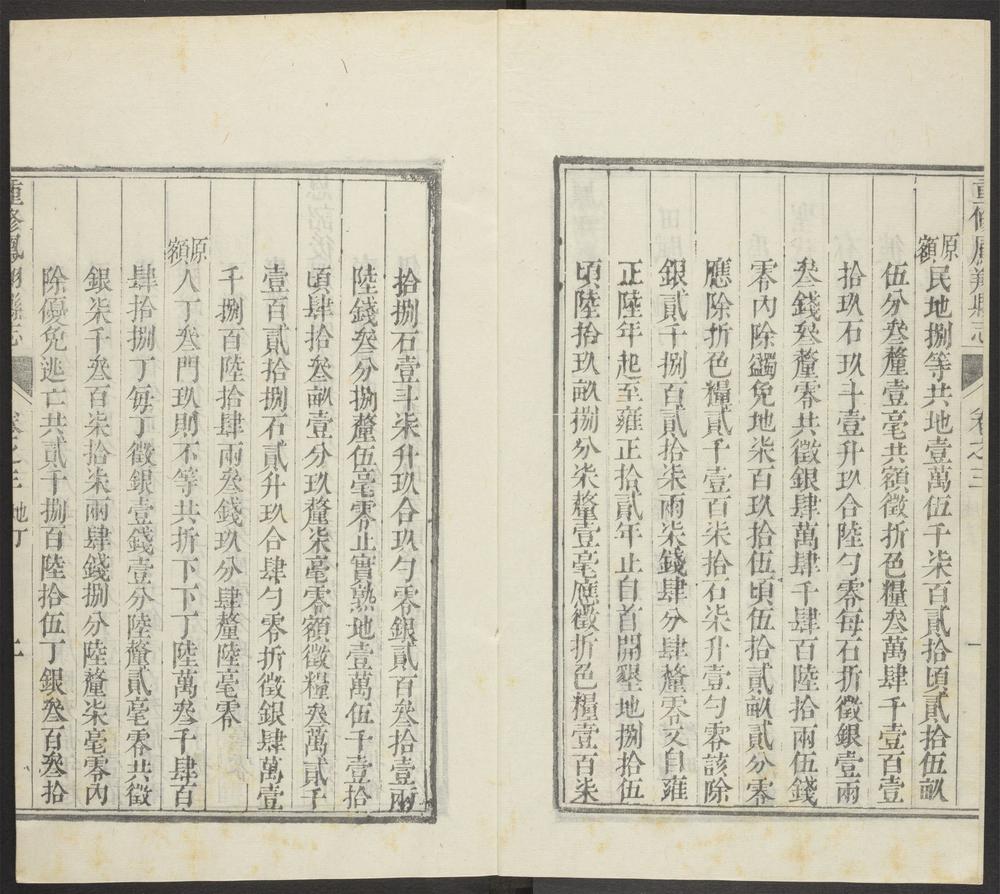 重修鳳翔縣志 卷之三 一
原額民地捌等共地壹萬伍千柒百貳拾頃貳拾伍畝
伍分叁釐壹毫共額徵折色糧叁萬肆千壹百壹
拾玖石玖斗壹升玖合陸勺零每石折徵銀壹兩
叁錢叁釐零共徵銀肆萬肆千肆百陸拾兩伍錢
零內除蠲免地柒百玖拾伍頃伍拾貳畝貳分零
應除折色糧貳千壹百柒拾石柒升壹勺零該除
銀貳千捌百貳拾柒兩柒錢肆分肆釐零又自雍
正陸年起至雍正拾貳年止自首開墾地捌拾伍
頃陸拾玖畝捌分柒釐壹毫應徵折色糧壹百柒
拾捌石壹斗柒升玖合玖勺零銀貳百叁拾壹兩
陸錢叁分捌釐伍毫零止實熟地壹萬伍千壹拾
頃肆拾叁畝壹分玖釐柒毫零額徵糧叁萬貳千
壹百貳拾捌石貳升玖合肆勺零折徵銀肆萬壹
千捌百陸拾肆兩叁錢玖分肆釐陸毫零
原額人丁叁門玖則不等共折下下丁陸萬叁千肆百
肆拾捌丁每丁徵銀壹錢壹分陸釐貳毫零共徵
銀柒千叁百柒拾柒兩肆錢捌分陸釐柒毫零內
除優免逃亡共貳千捌百陸拾伍丁銀叁百叁拾
重修鳳翔縣志 卷之三 地丁 二